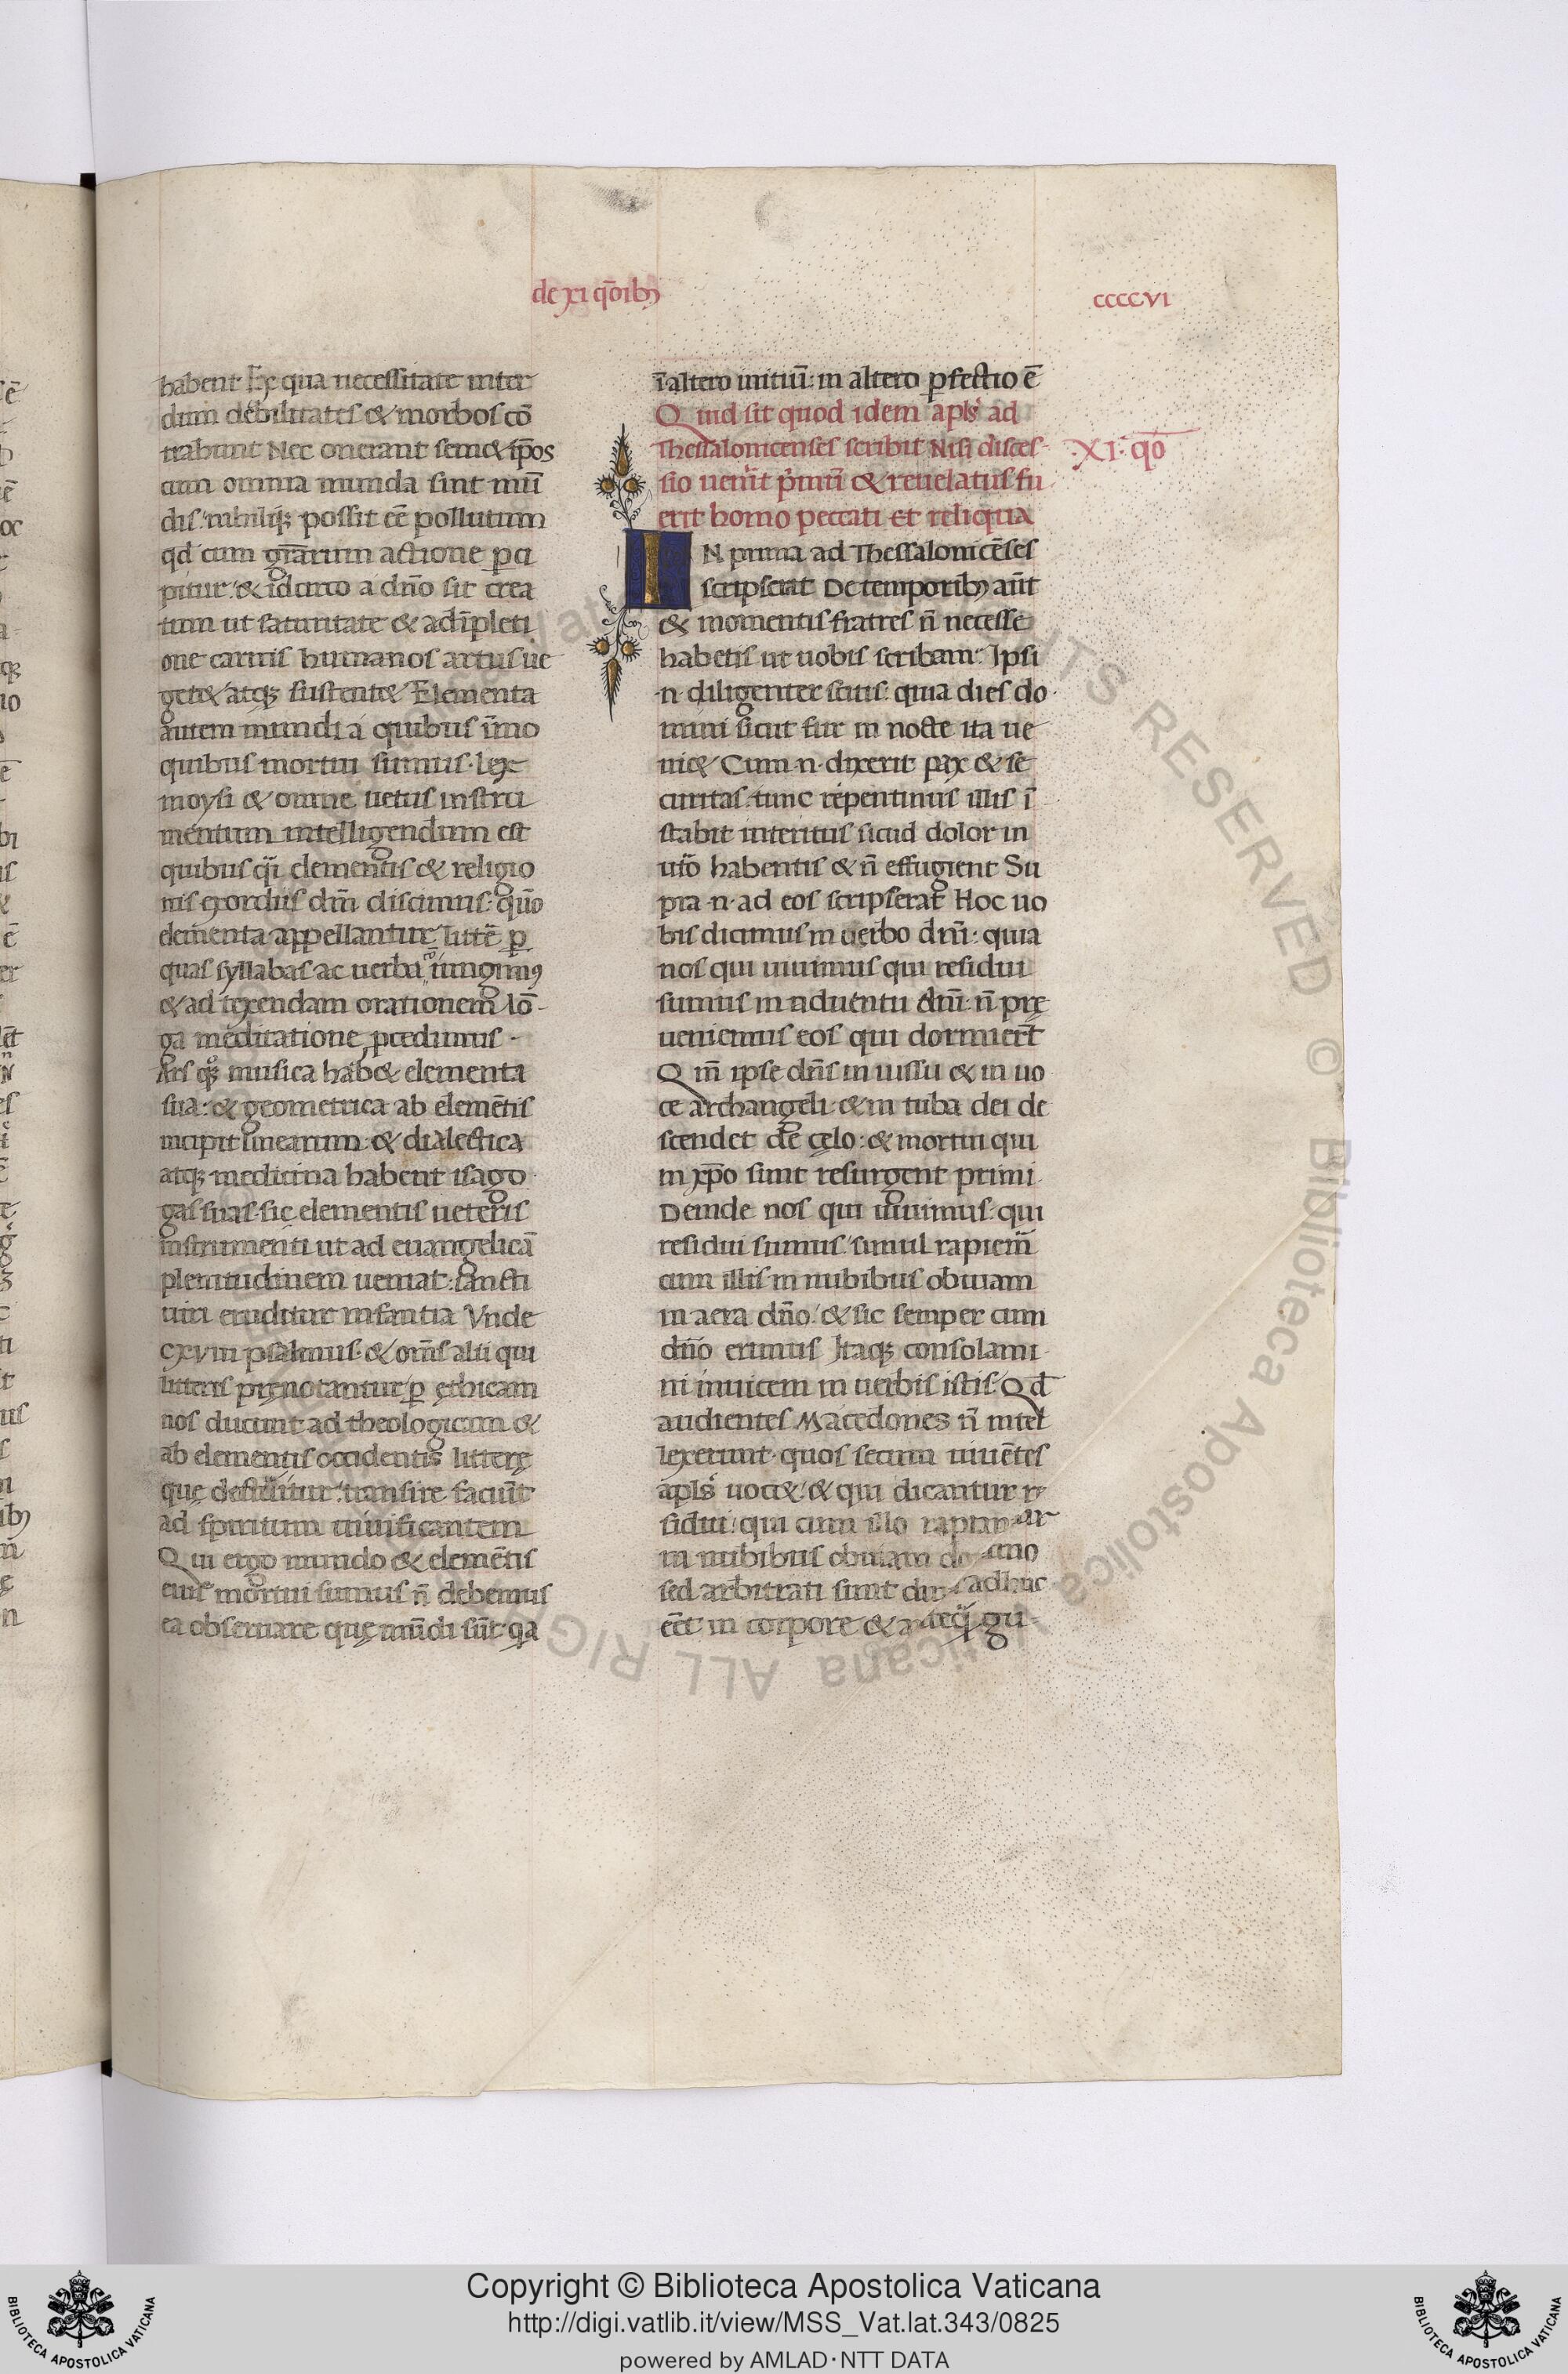 de xi q̄oıbȝ
ccccvi
habent Ex qua necessitate inter
dum debilitates & morbos cō
trahunt Nec onerant sem& ip̄os
cum omnia munda sint mū̄
dis: nihilqȝ possit eē pollutum
qd cum gr̄arum actione ꝑci
pitur: & idcirco a dño sit crea
tum ut saturitate & adīpleti
one carnis humanos artus ue
get& atqȝ sustent& Elementa
autem mundi a quibus īmo
quibus mortui sumus · lex
moysi & omne uetus instru
mentum intelligendum est
quibus q̄i elementis & religio
nis exordiis dm̄ discimus: quō
elementa appellantur litte ꝑ
quas syllabas ac uerba cō iungimꝰ
& ad texendam orationem lō-
ga meditatione ꝓcedimus ·
Ars qȝ musica hab& elementa
sua: & geometrica ab elemētis
incipit linearum: & dialectica
atqȝ medicina habent isago
gas suas sic elementis ueteris
instrumenti ut ad euangelicā
plenitudinem ueniat: sancti
uiri eruditur infantia Vnde
cxviii psalmus · & om̄s alii qui
litteris pręnotantur ꝑ ęthicam
nos ducunt ad theologicam &
ab elementis occidentis litterę
quę destruitur: transire faciūt
ad spiritum uiuificantem
Qui ergo mundo & elemētis
eius mortui sumus n̄ debemus
ea obseruare quę mūdi sūt qa
ī altero initiū: in altero ꝑfectio ē
Quid sit quod idem apl̄s ad
Thessalonicenses scribit Nisi disces-
sio uenīt pͥmū & reuelatus fu
erit homo peccati et reliqua
·XI· qō
IN prima ad Thessalonicēses
scripserat De temporibȝ aūt
& momentis fratres n̄ necesse
habetis ut uobis scribam: Ipsi
·n· diligenter scitis: quia dies do-
mini sicut fur in nocte ita ue
ni& Cum ·n· dixerit pax & se
curitas: tunc repentinus illis ī
stabit interitus sicud dolor in
utō habentis & n̄ effugient Su
pra ·n· ad eos scripserat Hoc uo
bis dicimus in uerbo dn̄i: quia
nos qui uiuimus qui residui
sumus in aduentu dn̄i: n̄ prę
ueniemus eos qui dormiert̄
Qm̄ ipse dn̄s in iussu & in uo
ce archangeli · & in tuba dei de
scendet de cęlo: & mortui qui
in xp̄o sunt resurgent primi
Deinde nos qui uiuimus: qui
residui sumus: simul rapiem̄
cum illis in nubibus obuiam
in aera dn̄o: & sic semper cum
dn̄o erimus Itaqȝ consolami
ni inuicem in uerbis istis: Qd̄
audientes Macedones n̄ intel
lexerunt · quos secum uiuētes
apl̄s uoc&: & qui dicantur re
sidui: qui cum illo
in nubibus obuiam
sed arbitrati sunt dum adhuc
eēt in corpore &